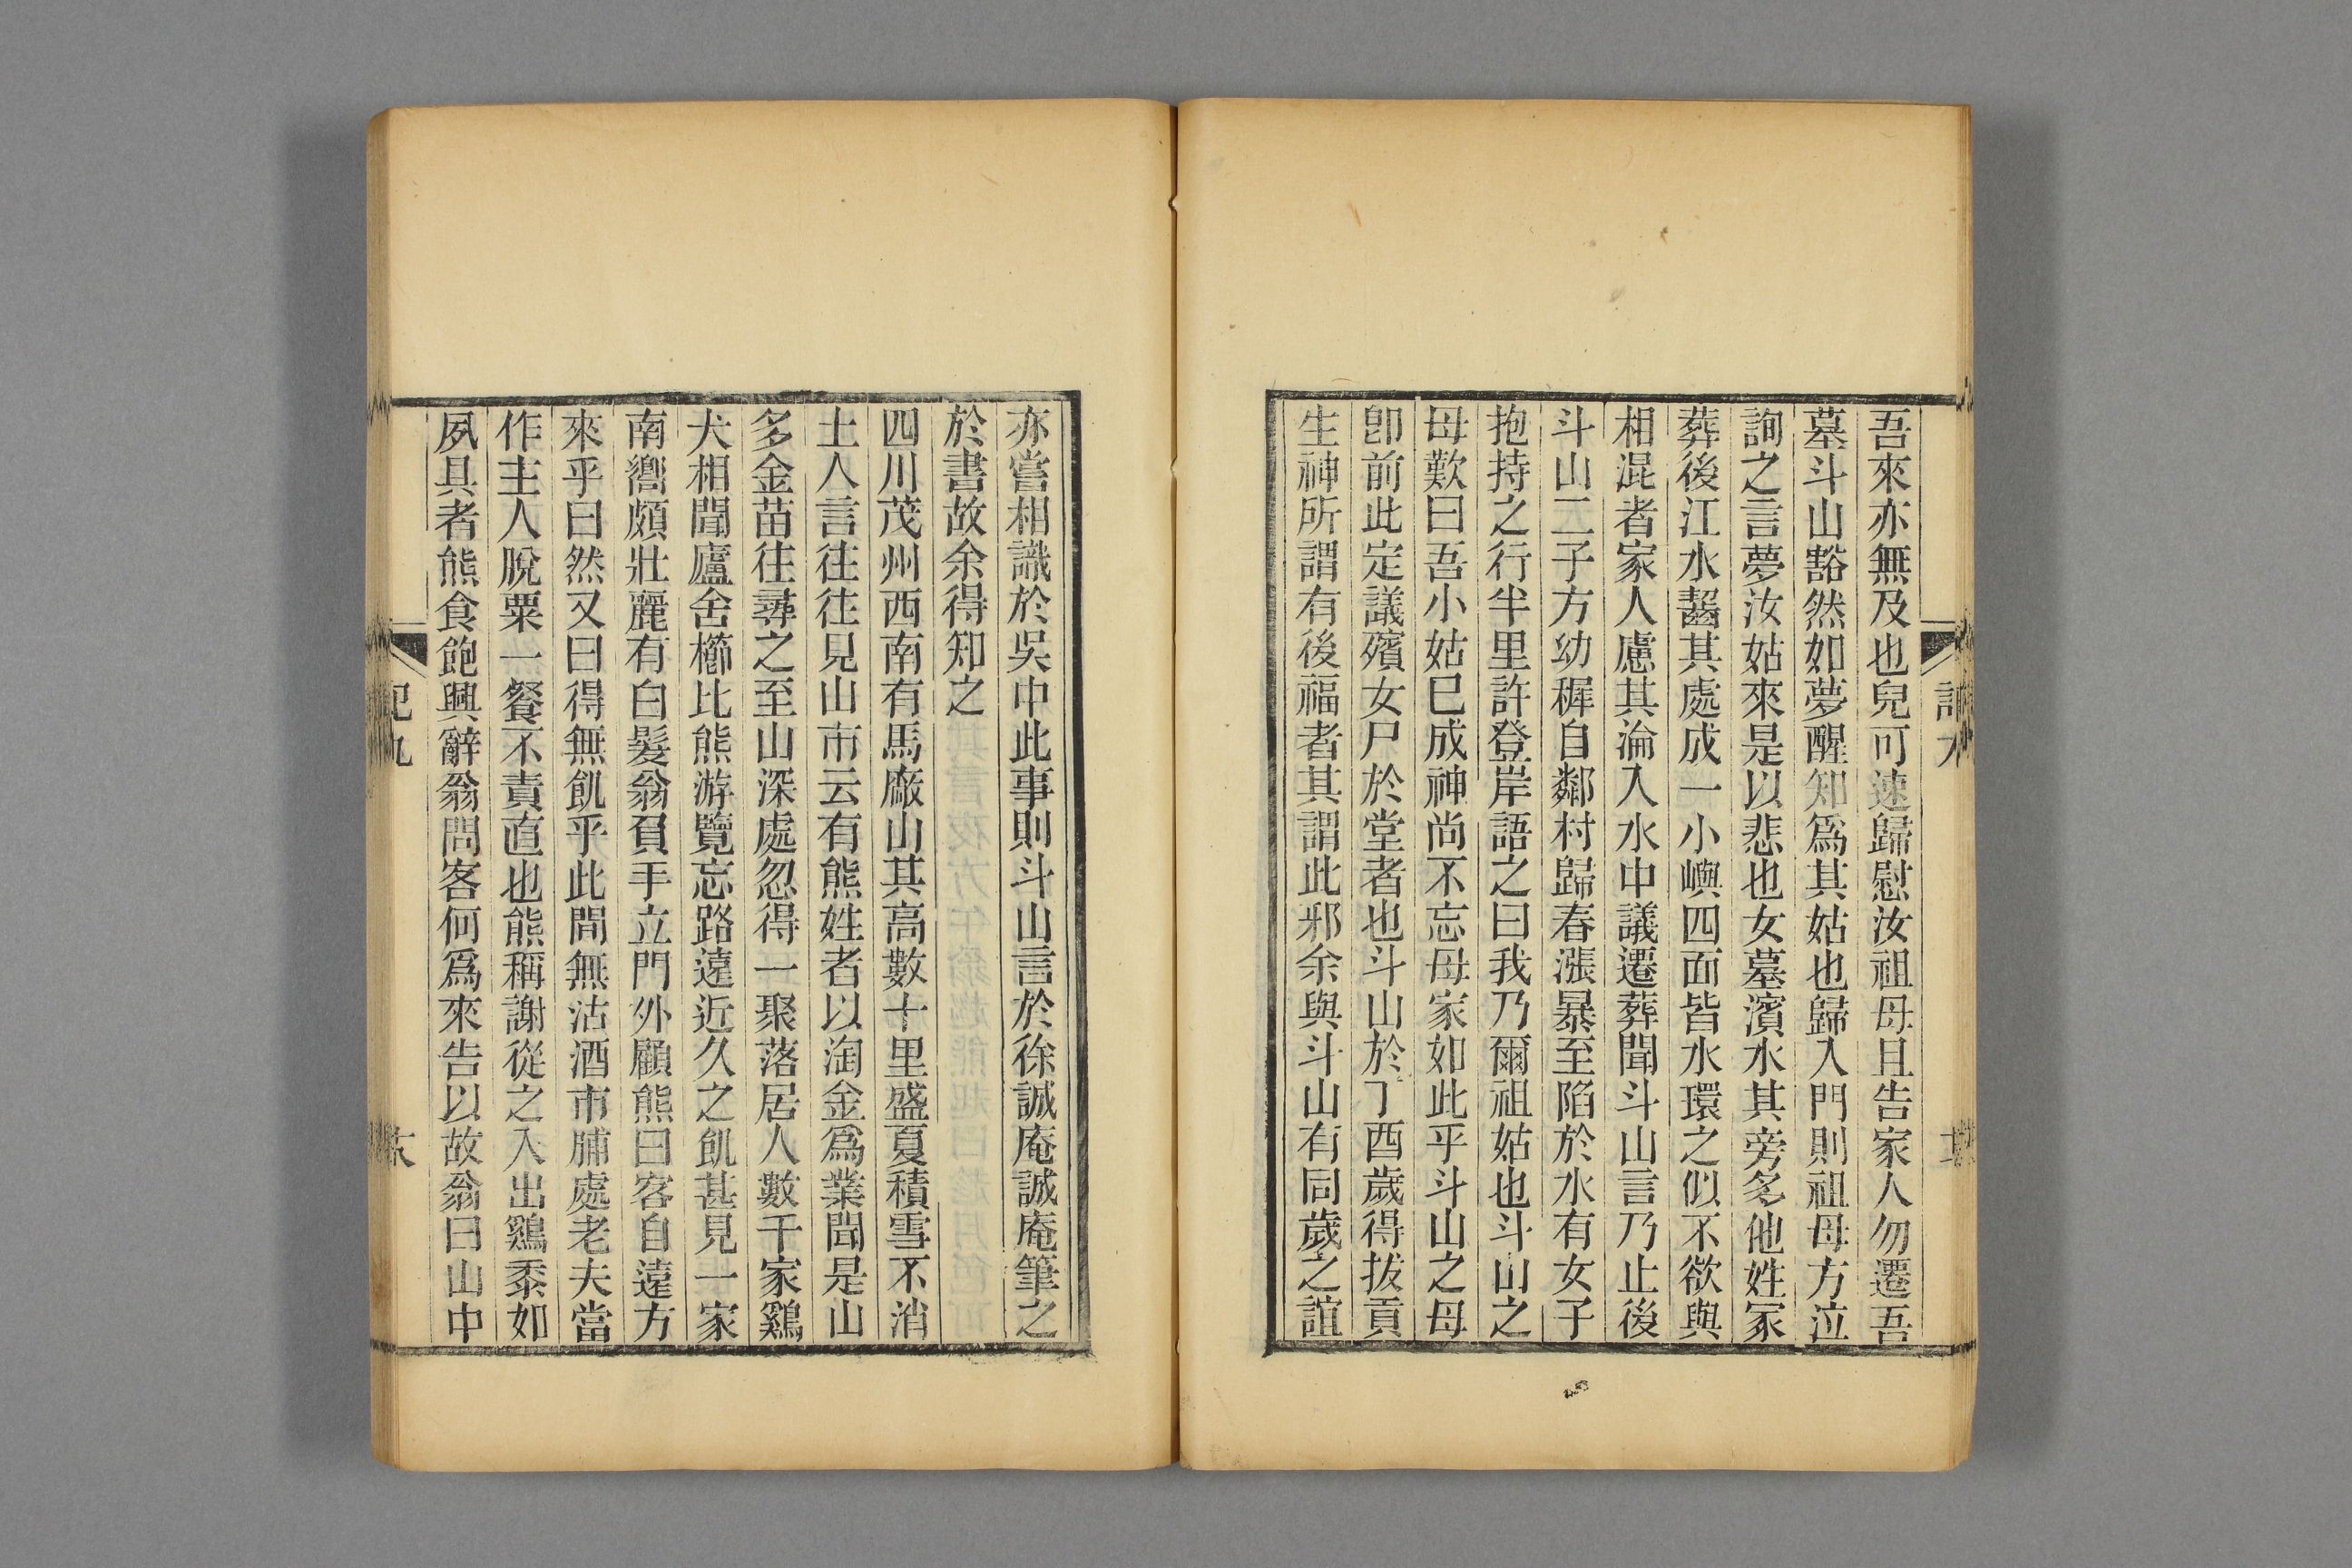 吾來亦無及也兒可速歸慰汝祖母且告家人勿遷吾
墓斗山豁然如夢醒知爲其姑也歸入門則祖母方泣
詢之言夢汝姑來是以悲也女墓濱水其旁多他姓冢
葬後江水齧其處成一小嶼四面皆水環之似不欲與
相混者家人慮其淪入水中議遷葬聞斗山言乃止後
斗山二子方幼穉自鄰村歸春漲暴至陷於水有女子
抱持之行半里許登岸語之曰我乃爾祖姑也斗山之
母歎曰吾小姑巳成神尚不忘母家如此乎斗山之母
卽前此定議殯女尸於堂者也斗山於丁酉歲得拔貢
生神所謂有後福者其謂此邪余與斗山有同歲之誼
亦嘗相識於吳中此事則斗山言於徐誠庵誠庵筆之
於書故余得知之
四川茂州西南有馬廠山其高數十里盛夏積雪不消
土人言往往見山市云有熊姓者以淘金爲業聞是山
多金苗往尋之至山深處忽得一聚落居人數千家鷄
犬相聞廬舍櫛比熊游覽忘路遠近久之飢甚見一家
南嚮頗壯麗有白髮翁負手立門外顧熊曰客自遠方
來乎曰然又曰得無飢乎此間無沽酒市脯處老夫當
作主人脫粟一餐不責直也熊稱謝從之入出鷄黍如
夙具者熊食飽興辭翁問客何爲來告以故翁曰山中